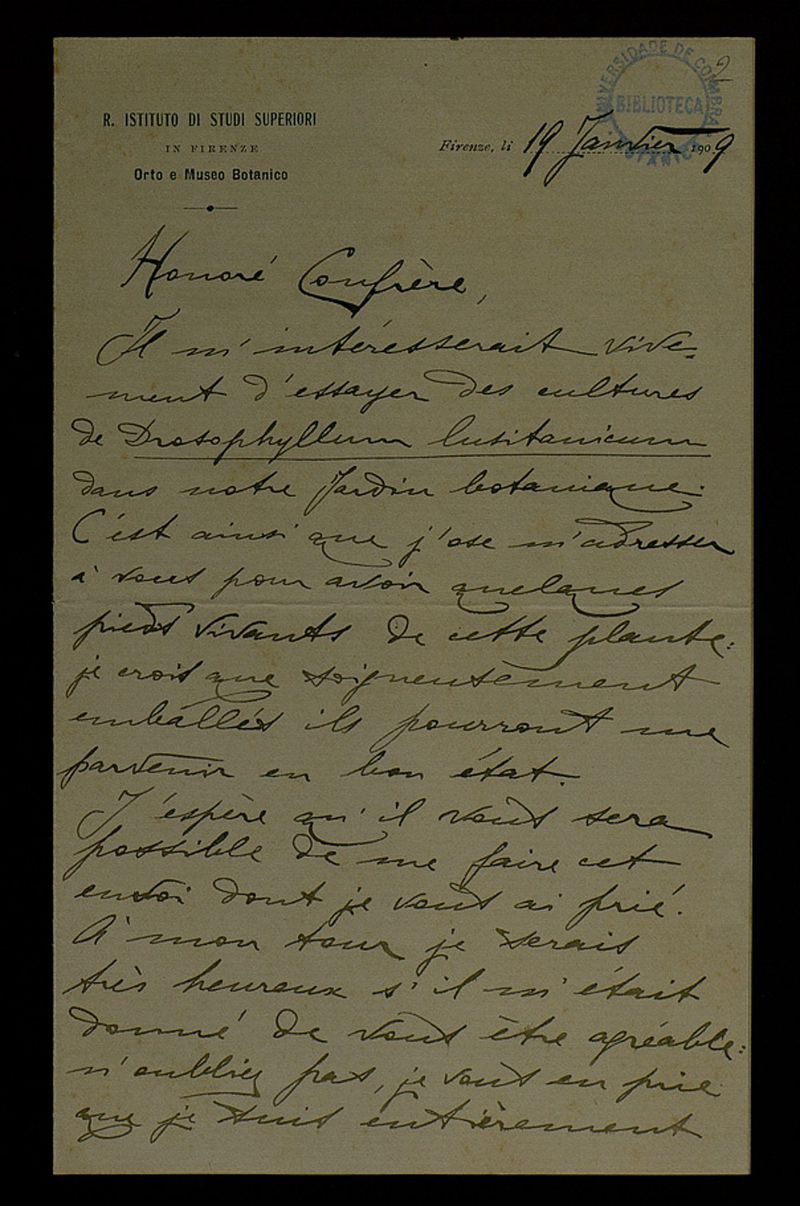 2
UNIVERSIDADE DE COIMBRA
BIBLIOTECA
BOTANIC
R. ISTITUTO DI STUDI SUPERIORI
IN FIRENZE
Orto e Museo Botanico
Firenze, li 19 Janvier 1909
Honoré Confrère,
Il m'intéresserait vive-
ment d'essayer des cultures
de Drosophyllum lusitanicum
dans notre Jardin botanique.
C'est ainsi que j'ose m'adresser
à vous pour avoir quelques
pieds vivants de cette plante:
je crois que soigneusement
emballés ils pourront me
parvenir en bon état.
J'espère qu'il vous sera
possible de me faire cet
envoi dont je vous ai prié.
À mon tour je serais
très heureux s'il m'était
donné de vous être agréable:
n'oubliez pas, je vous en prie
que je suis entièrement